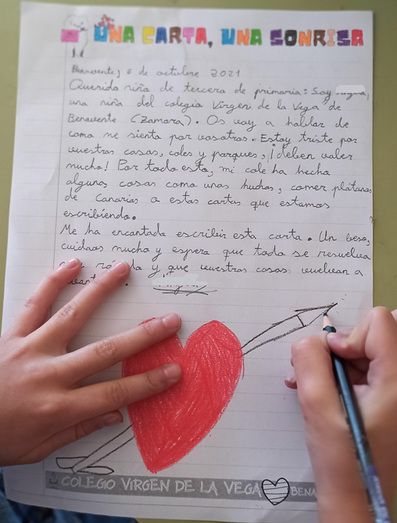 UNA CARTA, UNA SONRISA
Benavente, 6 de octubre 2021
Querida niña de tercera de primaria: Soy
una niña del colegio Virgen de la Vega de
Benavente (Zamora). Os voy a hablar de
como me siento por vosotras. Estoy triste por
vuestras casas, coles y parques, ¡deben valer
mucho! Por todo esto, mi cole ha hecho
algunas cosas como unas huchas, comer plátanos
de Canarias a estas cartas que estamos
escribiendo.
Me ha encantado escribir esta carta. Un beso,
cuidaos mucho y espero que todo se resuelva
y que vuestras casas vuelvan a
COLEGIO VIRGEN DE LA VEGA BENA